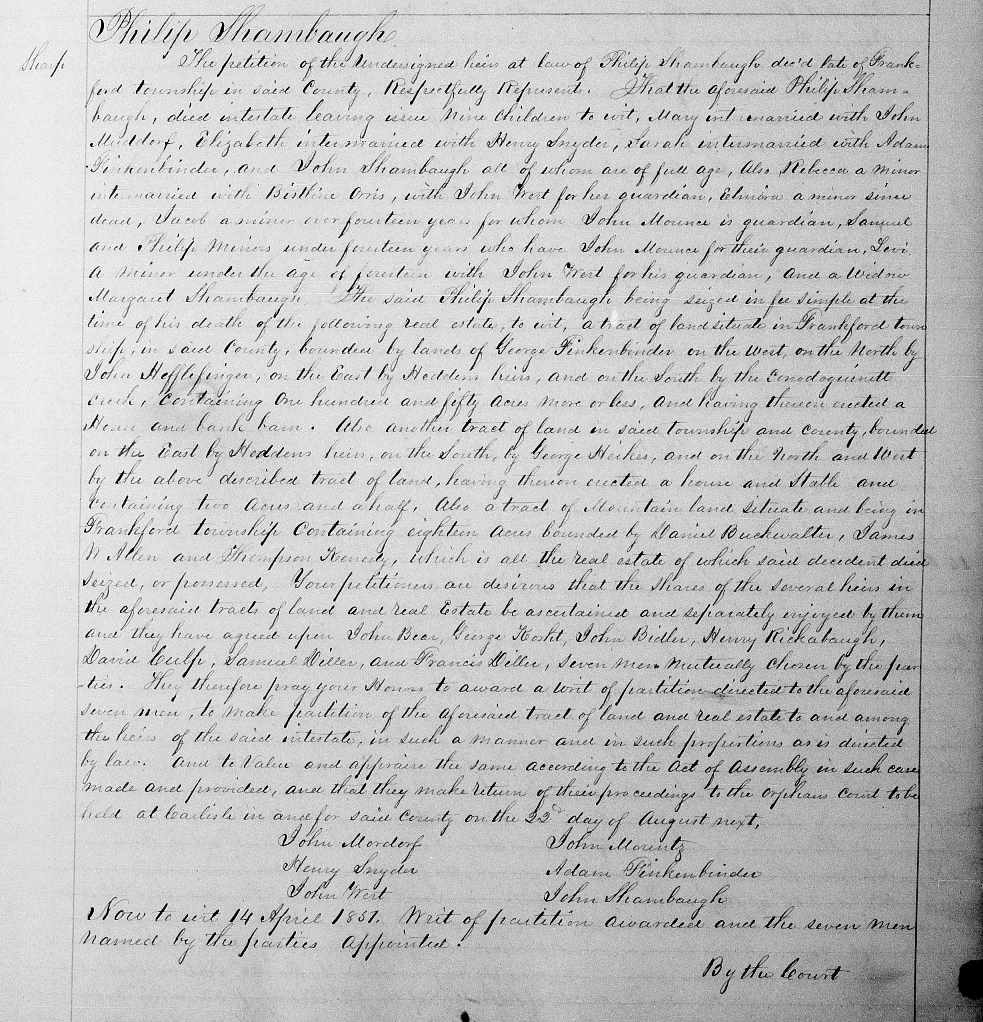 Philip Shambaugh
Sharp
The petition of the Undersigned heirs at law of Philip Shambaugh dec'd late of Frank-
ford township in said County, Respectfully Represent. That the aforesaid Philip Sham-
baugh, died intestate leaving issue Nine Children to wit, Mary int married with John
Muddorf, Elizabeth intermarried with Henry Snyder, Sarah intermarried with Adam
Finkenbinder, and John Shambaugh all of whom are of full age, Also Rebecca a minor
intermarried with Bistline Orris, with John West for her guardian, Elmira a minor since
dead, Jacob a minor over fourteen years for whom John Mounce is guardian, Samuel
and Philip Minors under fourteen years who have John Mounce for their guardian, Levi
a minor under the age of fourteen with John West for his guardian, and a Widow
Margaret Shambaugh. The said Philip Shambaugh being seized in fee simple at the
time of his death of the following real estate, to wit, a tract of land situate in Frankford town
ship, in said County, bounded by lands of George Finkenbinder on the West, on the North by
John Hefflefinger, on the East by Heddens heirs, and on the South by the Conodoguinett
creek, Containing One hundred and fifty Acres more or less, and having thereon erected a
House and bank barn. Also another tract of land in said township and county, bounded
on the East by Heddens heirs, on the South, by George Heikes, and on the North and West
by the above described tract of land, having thereon erected a house and Stable and
containing two Acres and a half, Also a tract of Mountain land situate and being in
Frankford township Containing eighteen Acres bounded by Daniel Buckwalter, James
W Allen and Thompson Kenedy, which is all the real estate of which said decedent died
seized, or possessed, Your petitioners are desirous that the shares of the several heirs in
the aforesaid tracts of land and real Estate be ascertained and separately enjoyed by them
and they have agreed upon John Bear, George Kosht, John Bidler, Henry Rickabaugh,
David Culp, Samuel Diller, and Francis Diller, seven men mutually chosen by the par
-ties. They therefore pray your Honors to award a writ of partition directed to the aforesaid
seven men, to make partition of the aforesaid tract of land and real estate to and among
the heirs of the said intestate, in such a manner and in such proportions as is directed
by law. And to Value and appraise the same according to the Act of Assembly in such case
made and provided, and that they make return of their proceedings to the Orphans Court to be
held at Carlisle in and for said County on the 22d day of August next,
John Mordorf John Morentz
Henry Snyder Adam Finkenbinder
John West John Shambaugh
Now to wit 14 April 1857. Writ of partition awarded and the seven men
named by the parties appointed.
By the Court